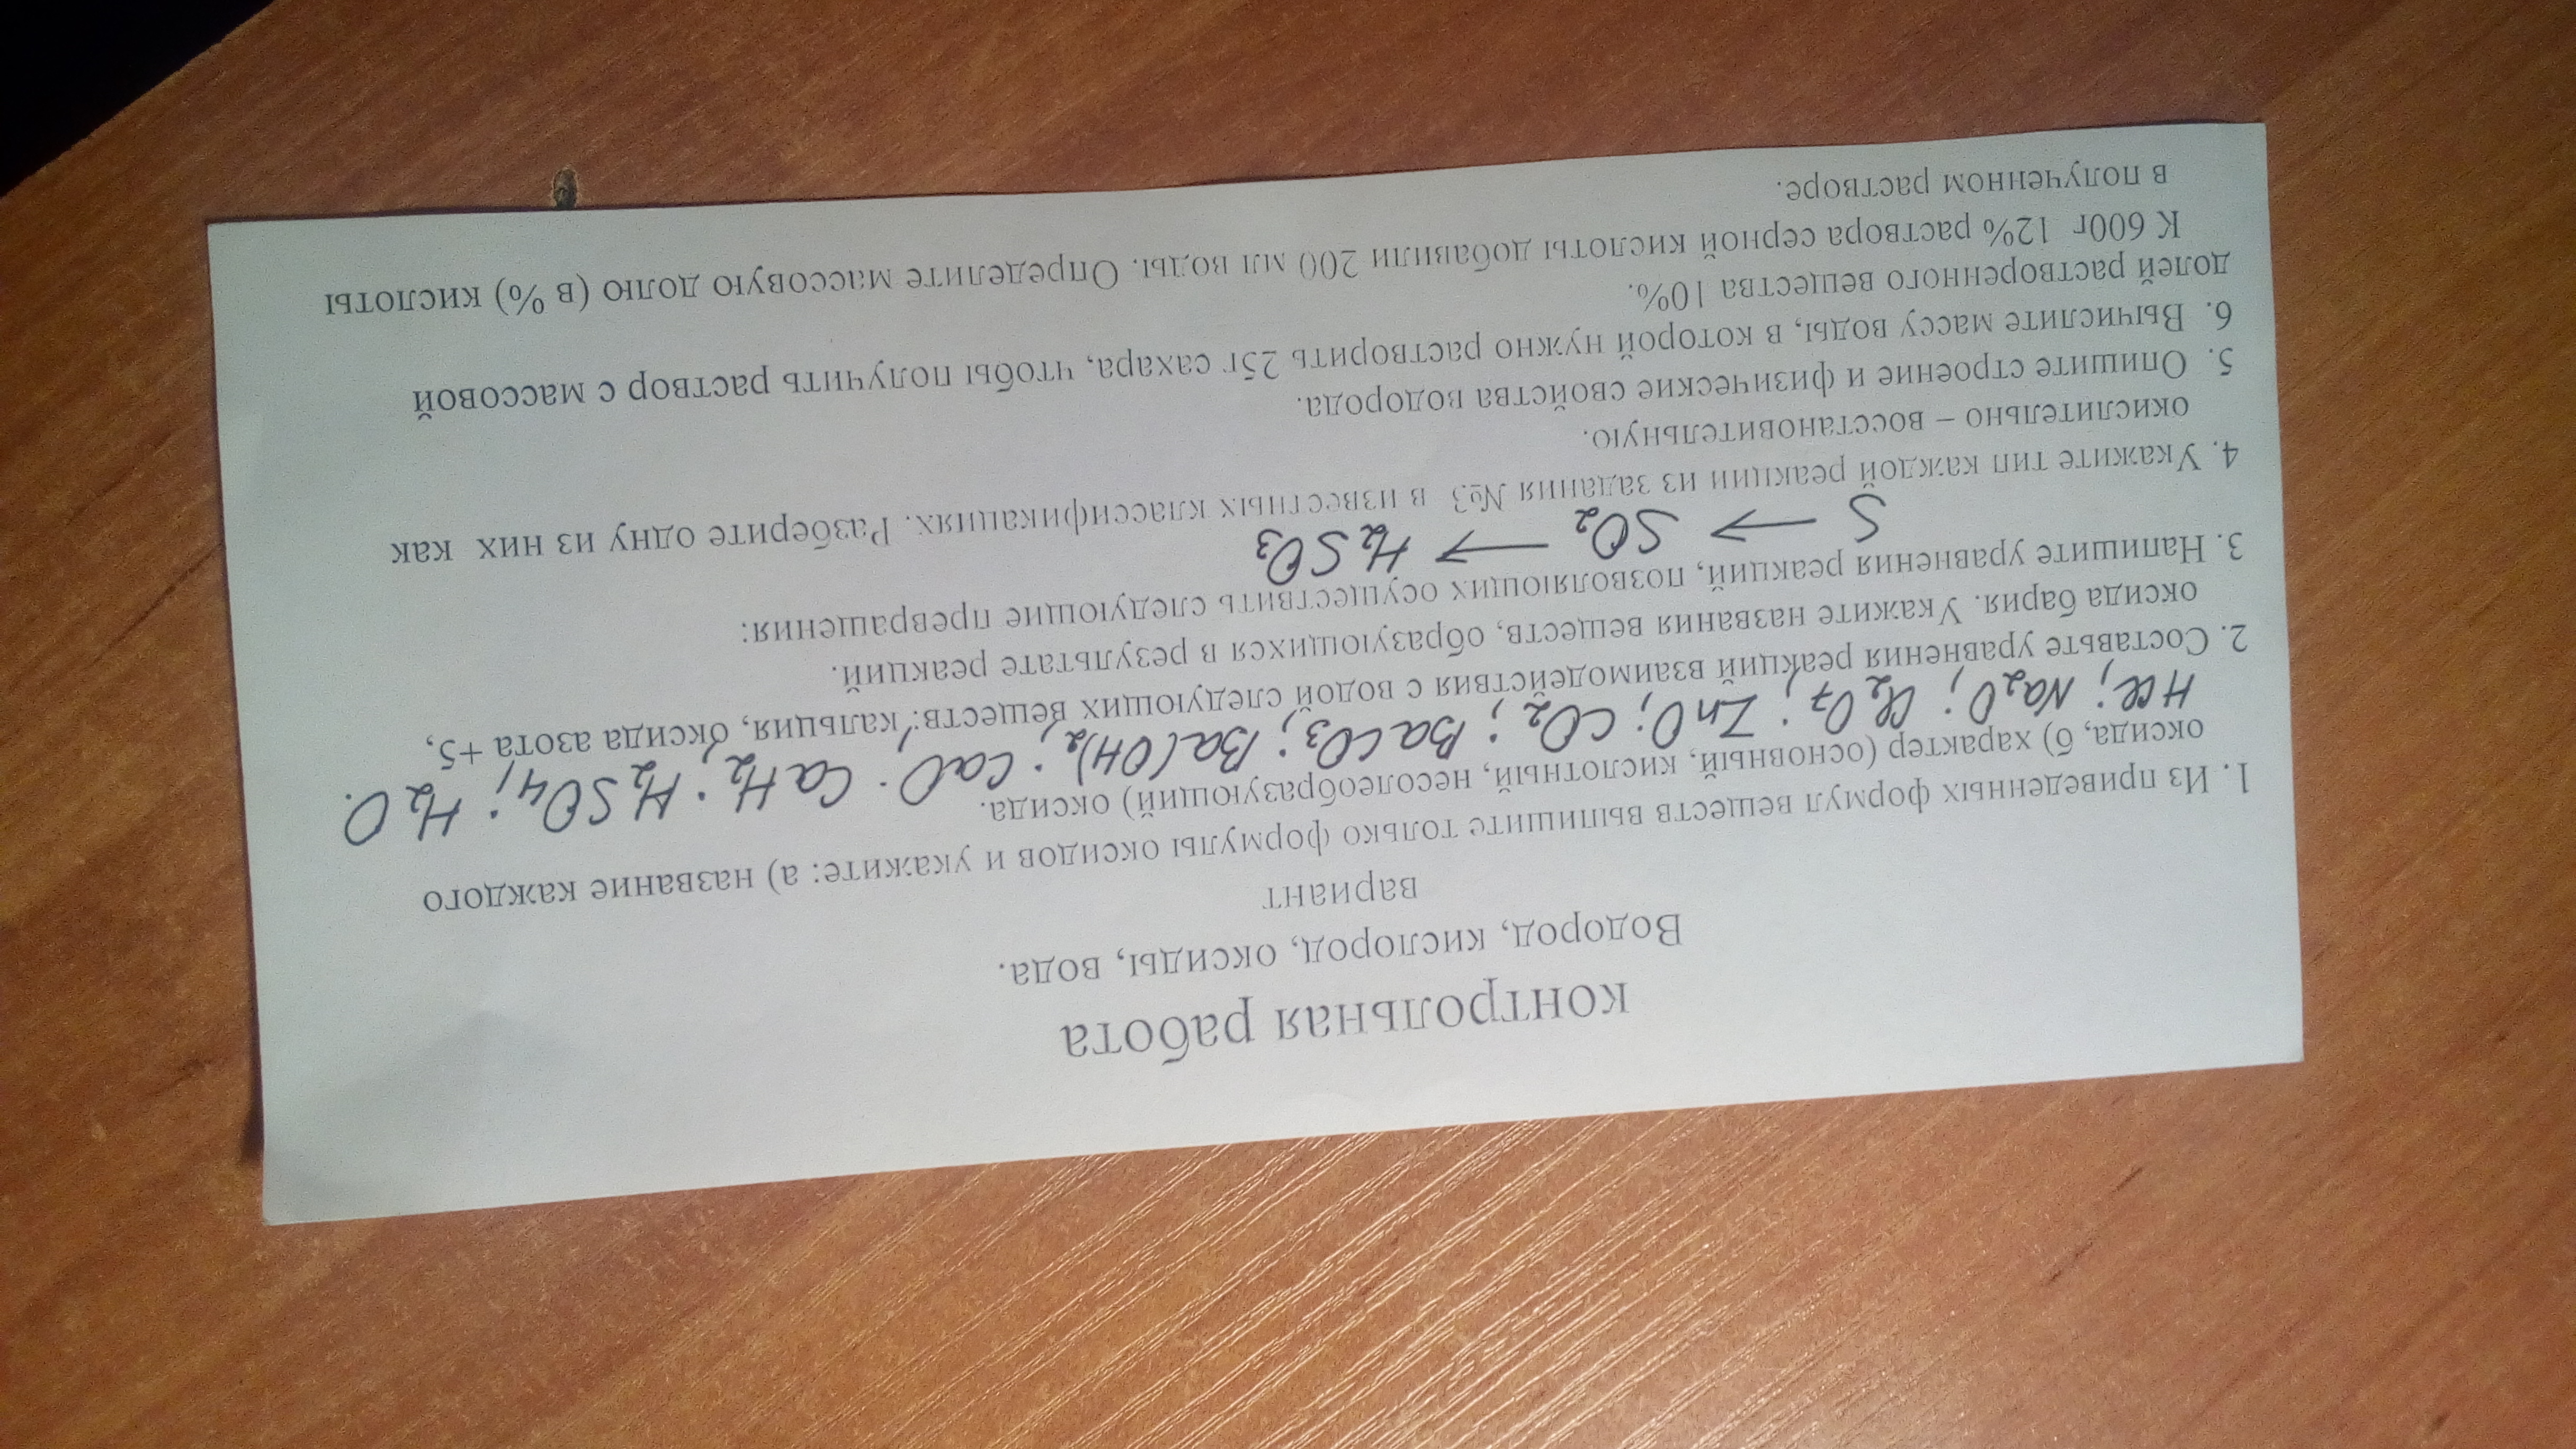 контрольная работа
Водород, кислород, оксиды, вода.
вариант
1. Из приведенных формул веществ выпишите только формулы оксидов и укажите: а) название каждого
оксида, б) характер (основный, кислотный, несолеобразующий) оксида.
HCl; Na2O; Cl2O7; ZnO; CO2; BaCO3; Ba(OH)2; CaO; CaH2; H2SO4; H2O.
2. Составьте уравнения реакций взаимодействия с водой следующих веществ: кальция, оксида азота +5,
оксида бария. Укажите названия веществ, образующихся в результате реакций.
3. Напишите уравнения реакций, позволяющих осуществить следующие превращения:
S → SO2 → H2SO3
4. Укажите тип каждой реакции из задания №3 в известных классификациях. Разберите одну из них как
окислительно – восстановительную.
5. Опишите строение и физические свойства водорода.
6. Вычислите массу воды, в которой нужно растворить 25г сахара, чтобы получить раствор с массовой
долей растворенного вещества 10%.
К 600г 12% раствора серной кислоты добавили 200 мл воды. Определите массовую долю (в %) кислоты
в полученном растворе.